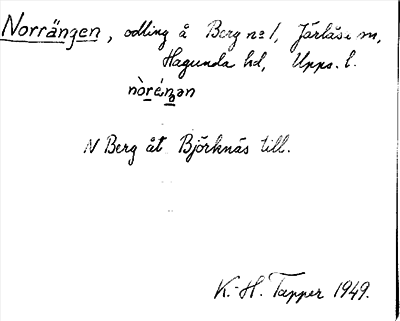 Norrängen, odling å Berg no 1, Järlåsa sn,
Hagunda hd, Upps. l.
N Berg åt Björknäs till.
K.-H. Tapper 1949.